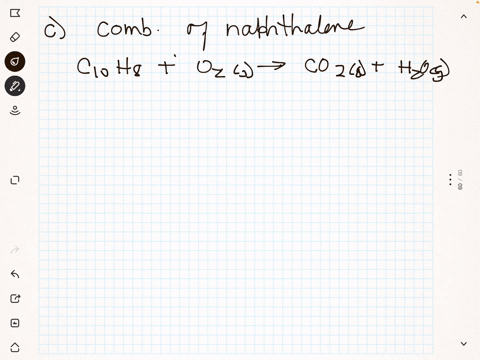 c) comb. of naphthalene
C10H8 + O2(g) → CO2(g) + H2O(g)